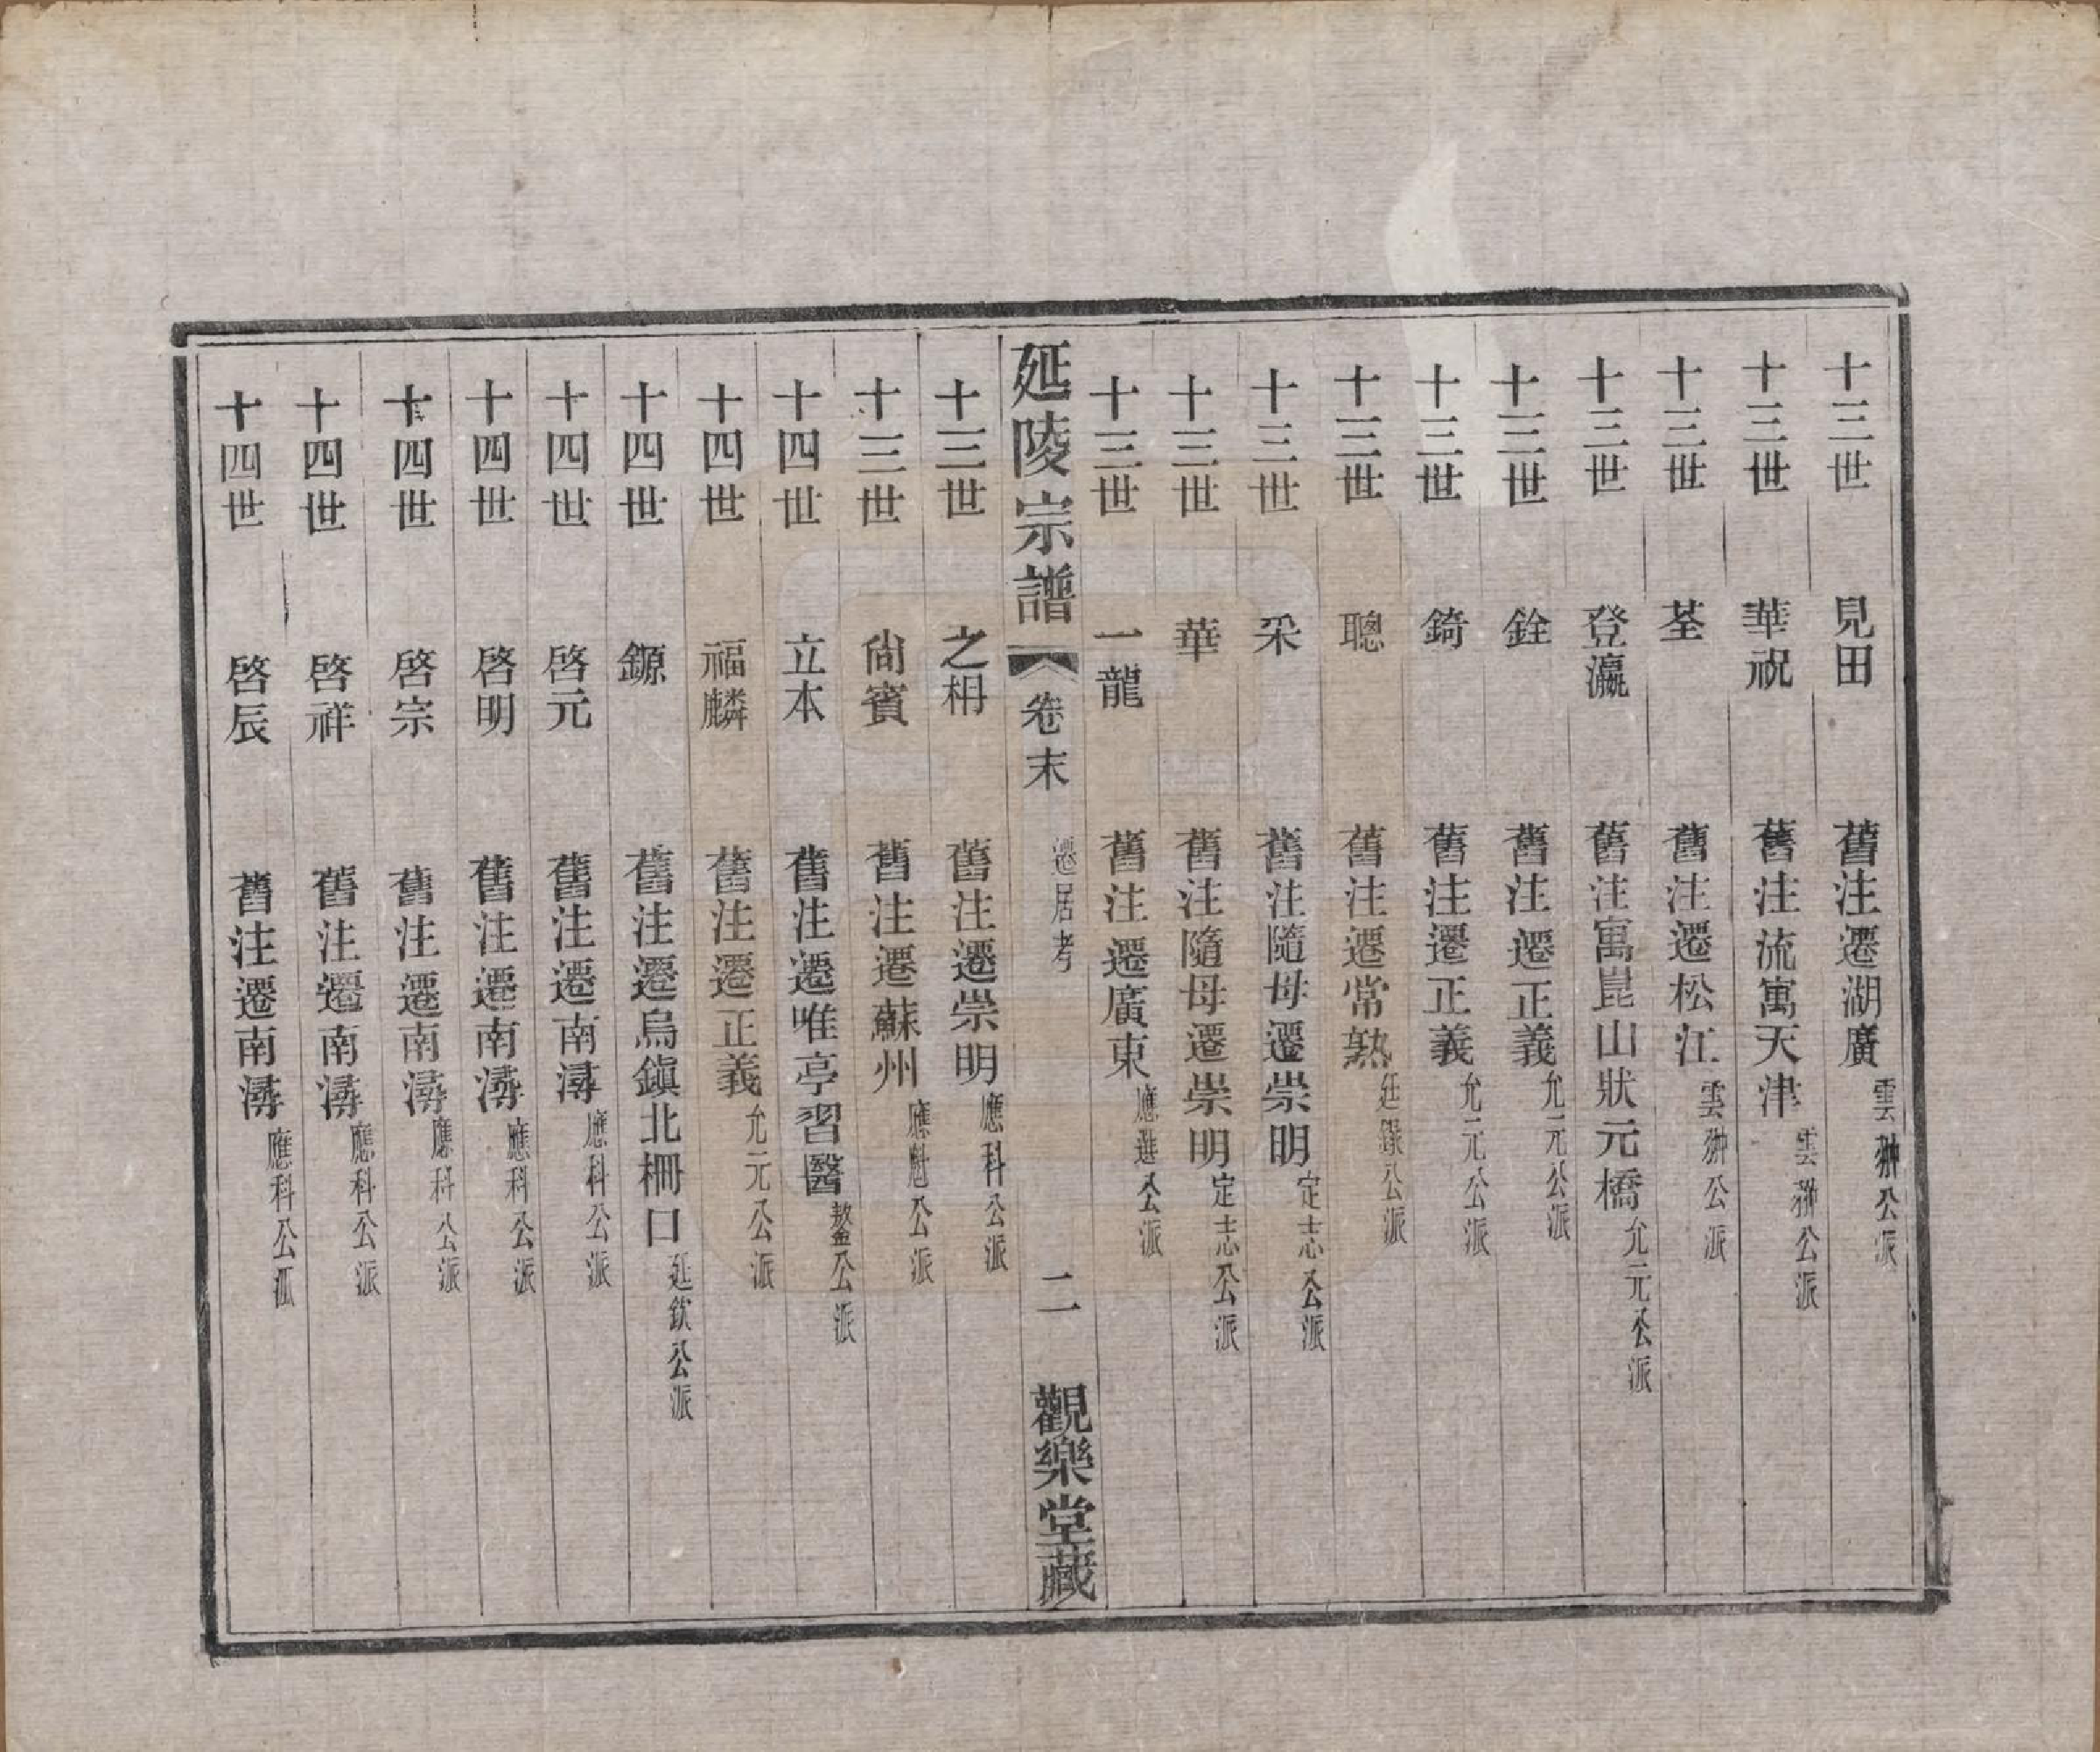 十三世 見田 舊注遷湖廣 雲翀公派
十三世 華祝 舊注流寓天津 雲翀公派
十三世 荃 舊注遷松江 雲翀公派
十三世 登瀛 舊注寓崑山狀元橋 允元公派
十三世 銓 舊注遷正義 允元公派
十三世 錡 舊注遷正義 允元公派
十三世 聰 舊注遷常熟 廷公派
十三世 采 舊注隨母遷崇明 定志公派
十三世 華 舊注隨母遷崇明 定志公派
十三世 一龍 舊注遷廣東 應選公派
延陵宗譜 卷末 遷居考 二 觀樂堂藏
十三世 之枏 舊注遷崇明 應科公派
十三世 尙賓 舊注遷蘇州 應魁公派
十四世 立本 舊注遷唯亭習醫 公派
十四世 福麟 舊注遷正義 允元公派
十四世 鎤 舊注遷烏鎭北柵口 廷欽公派
十四世 啓元 舊注遷南潯 應科公派
十四世 啓明 舊注遷南潯 應科公派
十四世 啓宗 舊注遷南潯 應科公派
十四世 啓祥 舊注遷南潯 應科公派
十四世 啓辰 舊注遷南潯 應科公派